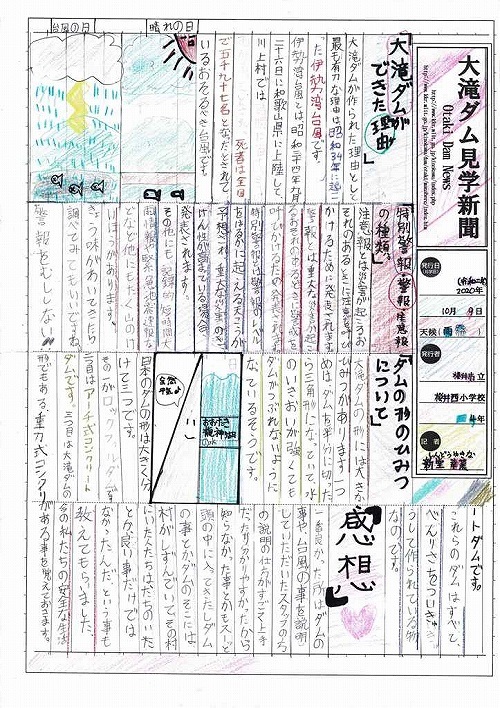 大滝ダム見学新聞
Otaki Dam News
発行日
(令和二年)
2020年
10月9日
天候(雨)
発行者
桜井市立
桜井西小学校
4年
記者
「大滝ダムが
できた理由」
大滝ダムが作られた理由として
最も有力な理由は昭和34年に起こっ
た伊勢湾台風です。
伊勢湾台風とは昭和三十四年九月
二十六日に和歌山県に上陸して
川上村では
死者は全国
で五千九十七名となったとされて
いるおそるべき台風です。
晴れの日
台風の日
「特別警報・警報・注意報
の種類。」
注意報とは災害が起こるお
それのあるときに注意をよび
かけるために発表されます。
警報とは重大な災害が起こ
るおそれのあるときに警戒を
呼びかけるため発表されます。
特別警報は警報のレベル
をはるかにこえる大雨が
予想され、重大な災害のき
けん性が高まている場合
発表されます。
その他にも記録的短時間大
雨情報や緊急地震速報な
どなど他にもたく山のけ
いほうがあります。
きょう味がわいてきたら
調べてみてもいいですね。
警報をむししない!!
「ダムの形のひみつ
について」
大滝ダムの形には大きな
ひみつがあります一つ
めは、ダムを半分に切った
ら三角形になっていて、水
のいきおいが強くても
ダムがつぶれないように
なているそうです。
おおたき
龍神湖
日本のダムの形は大きく分
けて三つです。
その一がロックフィルダムです。
二つ目はアーチ式コンクリート
ダムです。三つ目は大滝ダムの
形でもある、重力式コンクリ
ートダムです。
これらのダムはすべて、
べんりさをついきゅ
うして作られている物
なのです。
「感想」
一番良かった所はダムの
事や台風の事を説明
していただいたスタッフの方
の説明の仕方がすごく上手
だったり分かりやすかったから
知らなかった事とかもスーと
頭の中に入ってきたしダム
の事とかダムのそこには
村がしずんでいてその村
にいた人たちはだちのいた
とか良い事だけでは
なかったんだという事も
教えてもらいました。
今の私たちの安全な生活
がある事を覚えておきます。